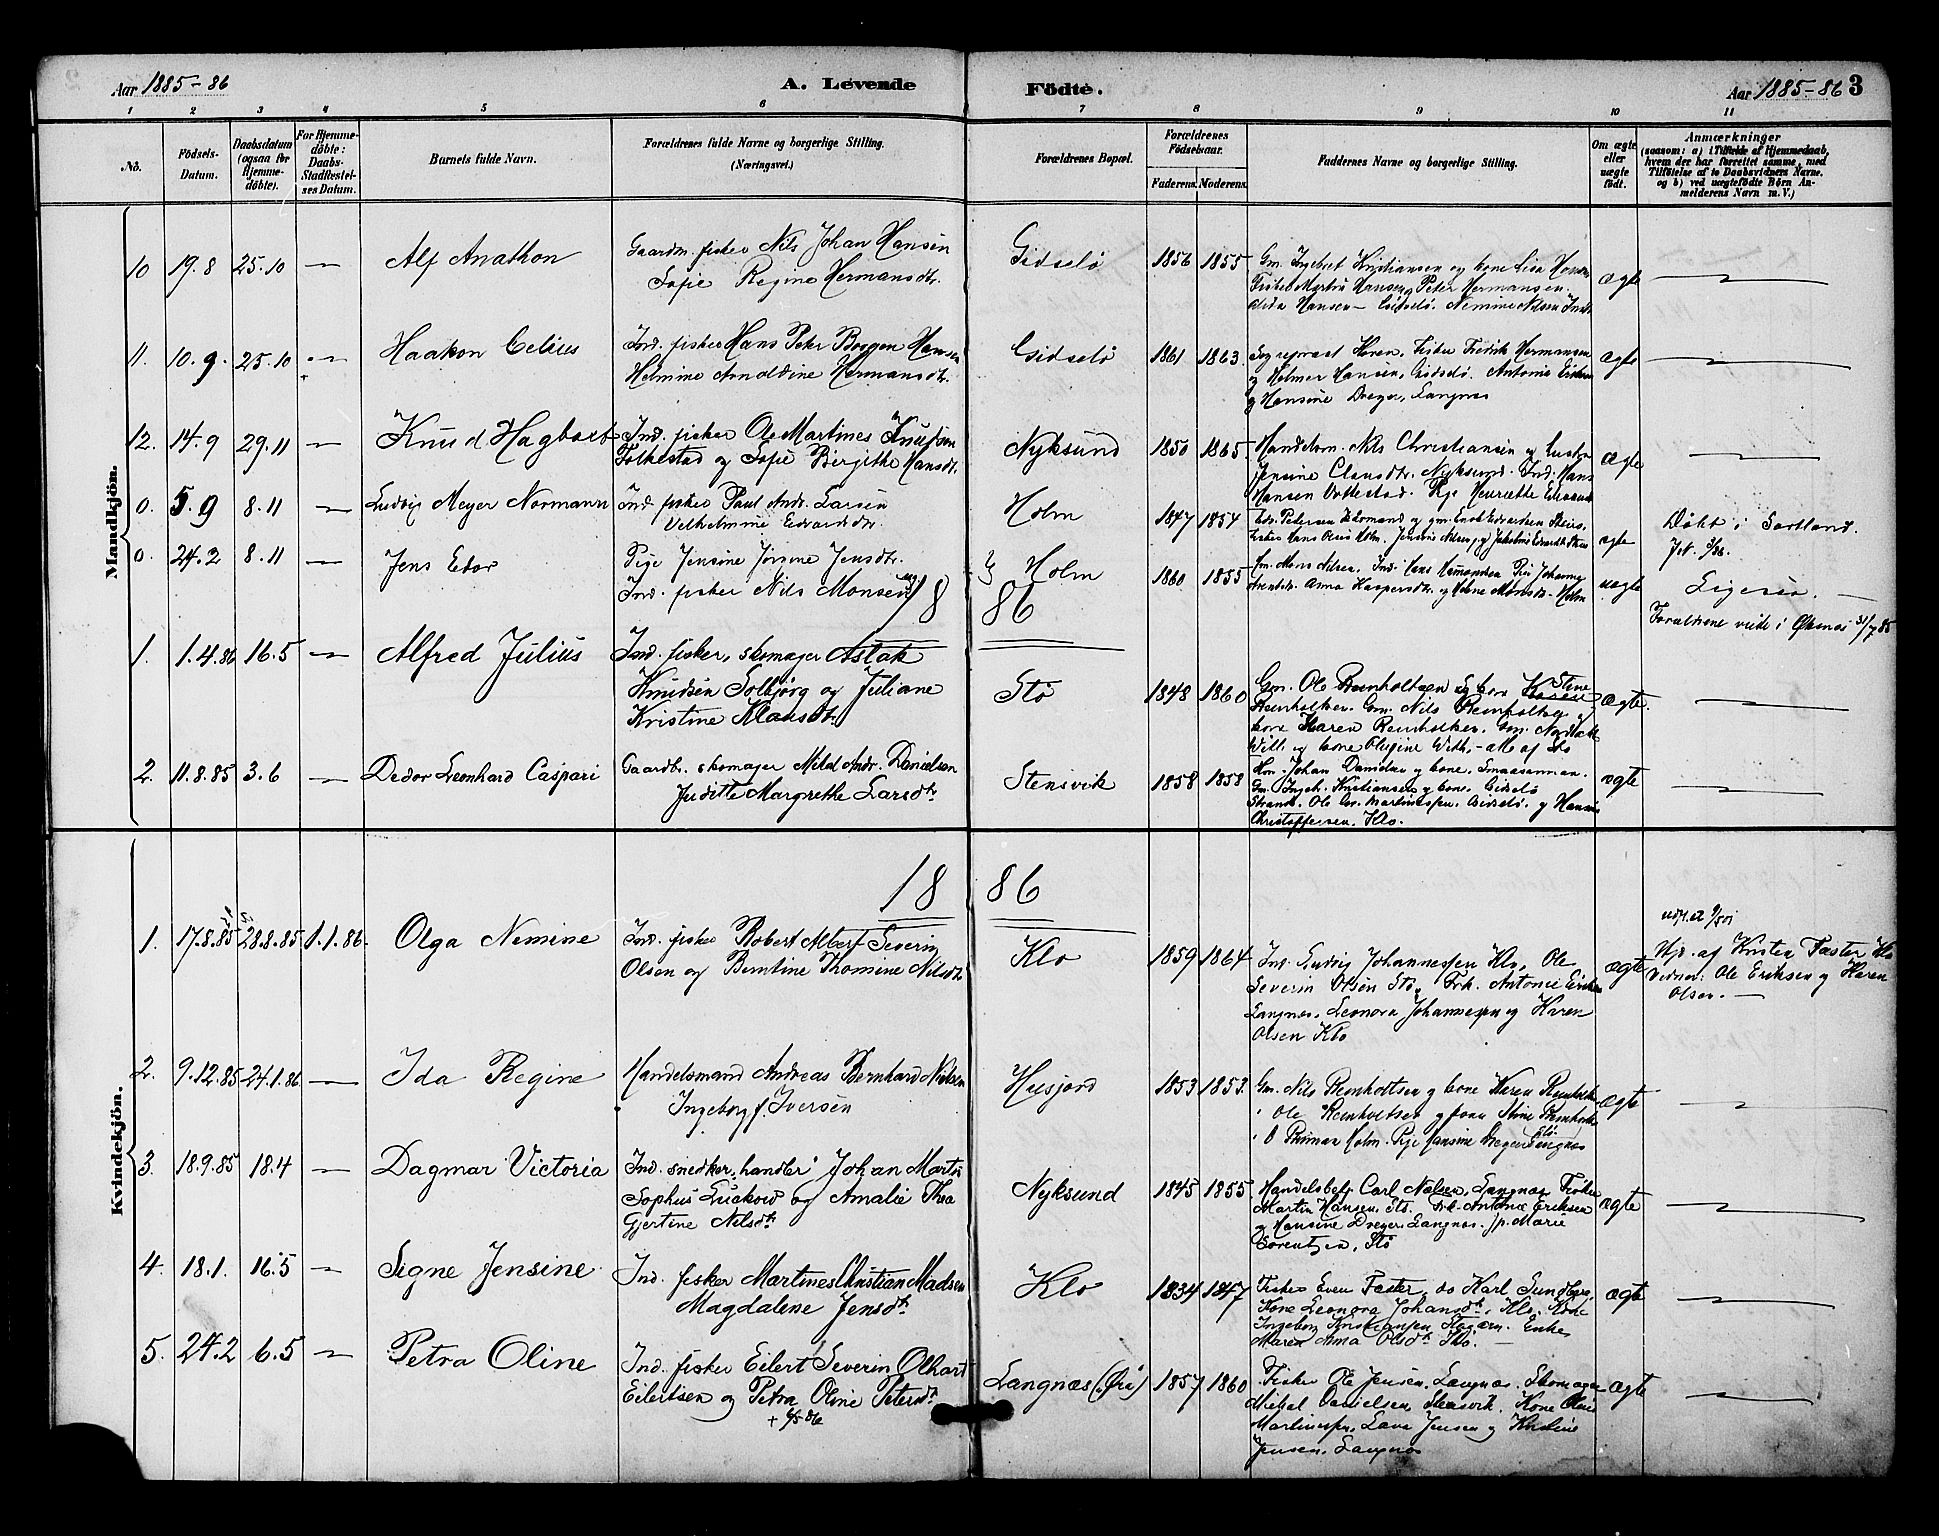 Aar 1885-86
A. Levende
Födte.
Aar 1885-86 3
1 2 3 4 5 6 7 8 9 10 11
No.
Födsels-
Datum.
Daabsdatum
(ogsaa for
Hjemme-
döbte).
For Hjemme-
döbte:
Daabs-
Stadfæstel-
ses Datum.
Barnets fulde Navn.
Forældrenes fulde Navne og borgerlige Stilling.
(Næringsvei.)
Forældrenes Bopæl.
Forældrenes
Födselsaar.
Faderens. Moderens.
Faddernes Navne og borgerlige Stilling.
Om ægte
eller
uægte
födt.
Anmærkninger
(saasom: a) i Tilfælde af Hjemmedaab,
hvem der har forrettet samme, med
Tilföielse af to Daabsvidners Navne.
og b) ved uægtefödte Börn An-
melderens Navn m. V.)
Mandkjön.
10 19.8 25.10 — Alf Anathon
Gaardm. fisker Nils Johan Hansen
Sofie Regine Hermansdtr.
Gidselö 1856 1855
Gm. Ingebret Kristiansen og kone
Martin Hansen, Peter Hermansen.
Hansen — Gidselö. Nemine Nilsen
ægte —
11. 10.9. 25.10 — Haakon Celius
Ind. fisker Hans Peter Hansen
Helmine Arnoldine Hermansdtr.
Gidselö 1861 1863.
Sogneprest Horen, Fisker Fredrik Hermansen
og Helmer Hansen, Gidselö. Antonie Eriksen
og Hansine Dreyer, Langnes
ægte —
12. 14.9 29.11 — Knud Hagbart
Ind. fisker Ole Martines Knutsen
Folkestad og Sofie Birgithe Hansdt.
Nyksund 1850 1865.
Handelsm. Nils Christiansen og hustru
Jensine Clausdtr. Nyksund. Ind. Hans
Hansen Pige Henriette
ægte —
0. 5.9 8.11 — Ludvig Meyer Normann
Ind. fisker Paul Andr. Larsen
Vilhelmine Edvardsdtr.
Holm 1847 1854
Petersen og gm. Enok Edvardsen
Hans Olai Holm.
ægte
Döbt i Sortland.
0. 24.2 8.11 — Jens Edor
Pige Jensine Jörgine Jensdtr.
Ind. fisker Nils Monsen
Holm 1860 1855
Gm. Mons Nilsen, Ind. Hans Pige Johanna
Anna Kaspersdtr. og Helene Monsdtr. Holm
uægte
Ligesaa. —
Forældrene viede i Öksnes 31/7 85
18 86
1. 1.4.86 16.5 — Alfred Julius
Ind. fisker, skomager Aslak
Knudsen Solbjörg og Juliane
Kristine Klausdtr.
Stö 1848 1860
Gm. Ole Reinholtsen og kone Stine
Reinholtsen. Gm. Nils Reinholtsen og
kone Karen Reinholtsen. Gm.
With og kone Olugine With, — All af Stö
ægte. —
2. 11.8.85 3.6 — Dedor Leonhard Caspari
Gaardbr. skomager Mikal Andr. Danielsen
Juditte Margrethe Larsdtr.
Stensvik 1858 1858
Gm. Johan Danielsen og kone,
Gm. Ingebr. Kristiansen og kone, Gidselö
Strand. Ole Martinussen, Gidselö. og
Christoffersen. Klo.
ægte —
Kvindekjön.
18 86
1. 17.8.85 28.8.85 1.1.86. Olga Nemine
Ind. fisker Robert Albert Severin
Olsen og Berntine Thomine Nilsdtr.
Klo 1859 1864
Ind. Ludvig Johannessen Klo, Ole
Severin Olsen Stö, Frk. Antonie Eriksen
Langnes. Leonora Johannesen og Karen
Olsen Klo
ægte
Hjd. af Kristen Faster Klo
Vidner: Ole Eriksen og Karen
Olsen. —
2. 9.12.85 24.1.86 — Ida Regine
Handelsmand Andreas Bernhard Nilsen
Ingeborg f. Iversen
Husjord 1853 1853.
Gm. Nils Reinholtsen og kone Karen Reinholtsen
Ole Reinholtsen og kone Stine Reinholtsen Stö
Holm. Pige Hansine Dreyer Langnes
ægte —
3. 18.9.85 18.4 — Dagmar Victoria
Ind. snedker, handler Johan Martin
Sophus Luckow og Amalie Thea
Gjertine Nilsdtr
Nyksund 1845 1855
Handelsbetj. Carl Nielsen, Langnes. Fisker
Martin Hansen, Stö. Frk. Antonie Eriksen
og Hansine Dreyer Langnes. Marie
Lorentzen, Stö
ægte —
4. 18.1. 16.5 — Signe Jensine
Ind. fisker Martines Christian Madsen
Magdalene Jensdtr.
Klo 1834 1847
Fisker Even Faster, do Karl Sundberg,
Kone Leonora Johansdtr. Klo. Kone
Ingeborg Kristiansen. Enke
Maren Anna Olsdtr. Stö. —
ægte —
5. 24.2 6.5 — Petra Oline
Ind. fisker Eilert Severin Olhart
Eilertsen og Petra Oline Petersdtr.
Langnæs (Öre) 1857 1860
Fisker Ole Jensen, Langnes. Skomager
Mikal Danielsen Stensvik. Kone Oline
Martinussen, Lava Jensen og Kristine
Jensen, Langnes
ægte —